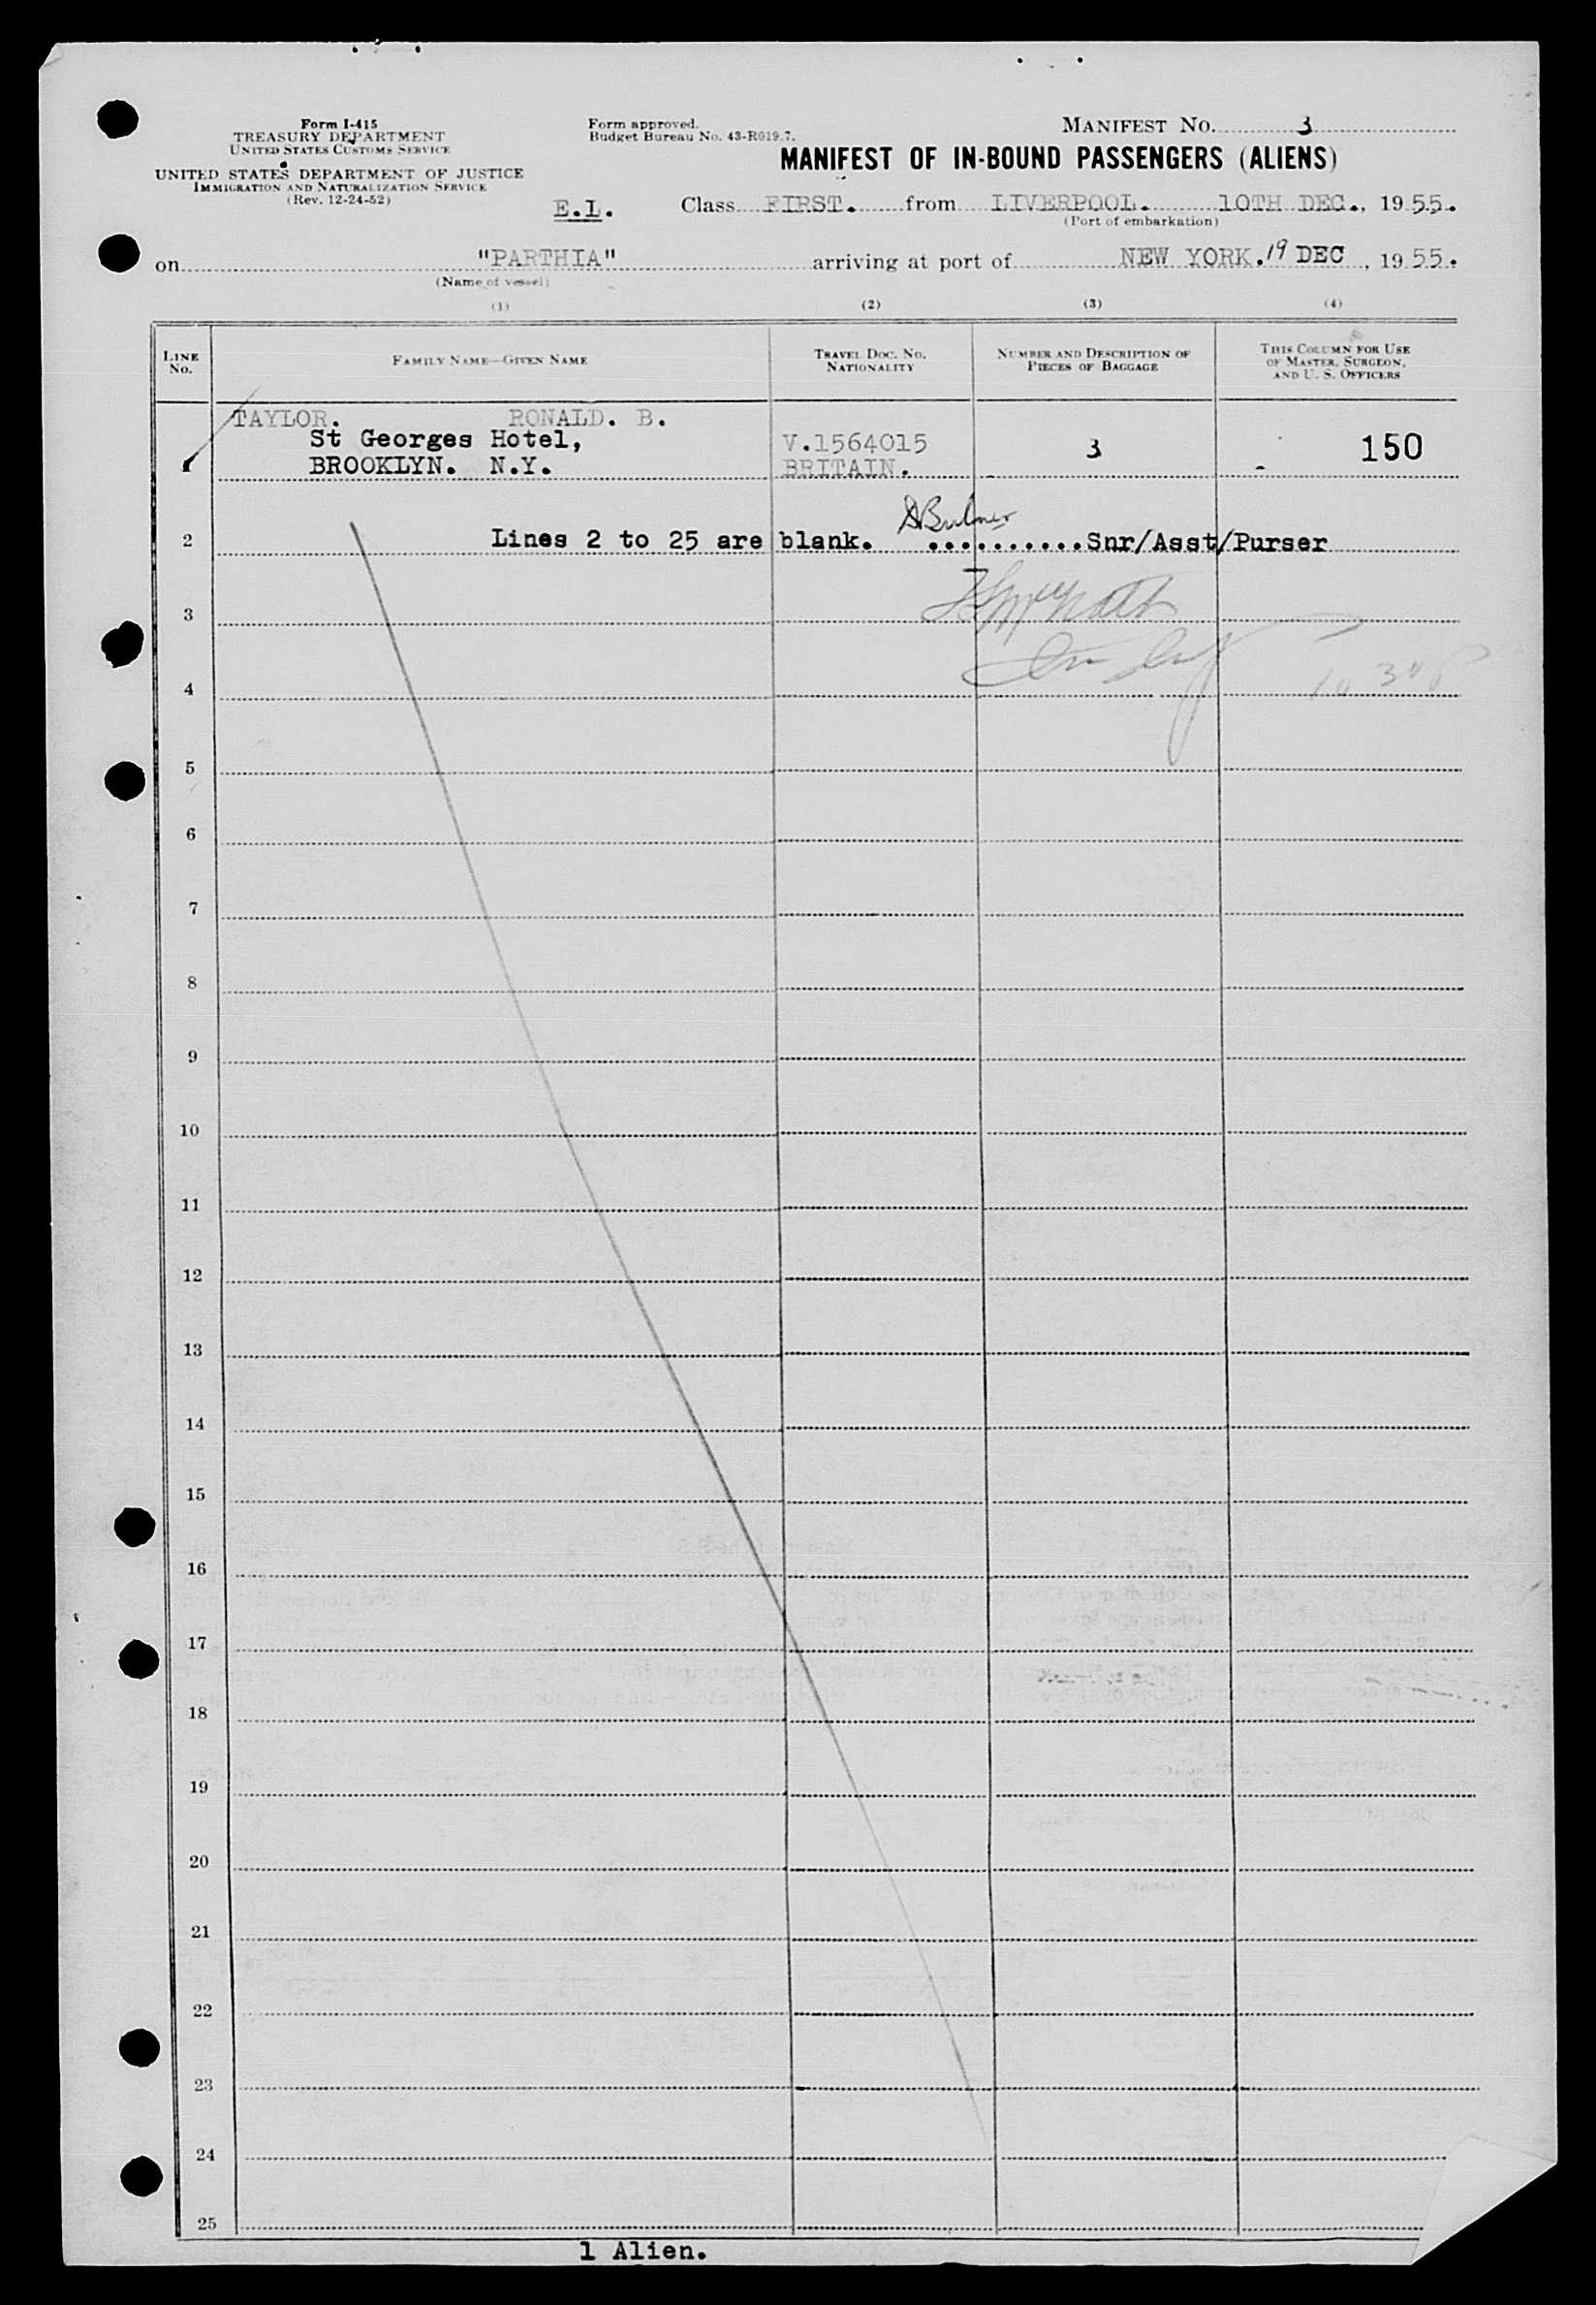 Form I-415
TREASURY DEPARTMENT
UNITED STATES CUSTOMS SERVICE
UNITED STATES DEPARTMENT OF JUSTICE
IMMIGRATION AND NATURALIZATION SERVICE
(Rev. 12-24-52)
Form approved.
Budget Bureau No. 43-R019.7.
MANIFEST No. 3
MANIFEST OF IN-BOUND PASSENGERS (ALIENS)
E.L. Class FIRST. from LIVERPOOL. 10TH DEC., 1955.
(Port of embarkation)
on "PARTHIA" arriving at port of NEW YORK. 19 DEC, 1955.
(Name of vessel)
(1) (2) (3) (4)
LINE No. FAMILY NAME—GIVEN NAME TRAVEL DOC. NO. NATIONALITY NUMBER AND DESCRIPTION OF PIECES OF BAGGAGE THIS COLUMN FOR USE OF MASTER, SURGEON, AND U. S. OFFICERS
TAYLOR. RONALD. B.
St Georges Hotel, V.1564015 3 150
1 BROOKLYN. N.Y. BRITAIN.
2 Lines 2 to 25 are blank. ..........Snr/Asst/Purser
3
4
5
6
7
8
9
10
11
12
13
14
15
16
17
18
19
20
21
22
23
24
25
1 Alien.